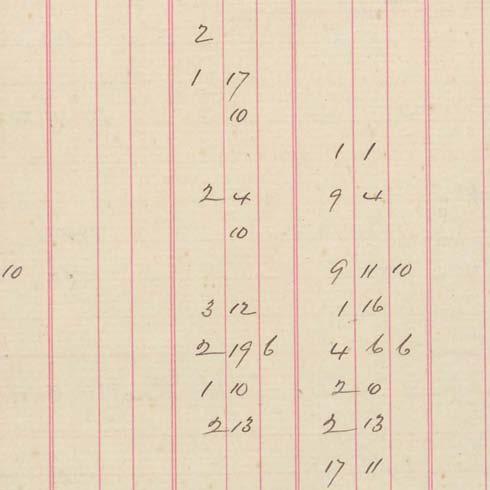 2
1 17
10
1 1
2 4 9 4
10
10 9 11 10
3 12 1 16
2 19 6 4 6 6
1 10 2 0
2 13 2 13
17 11